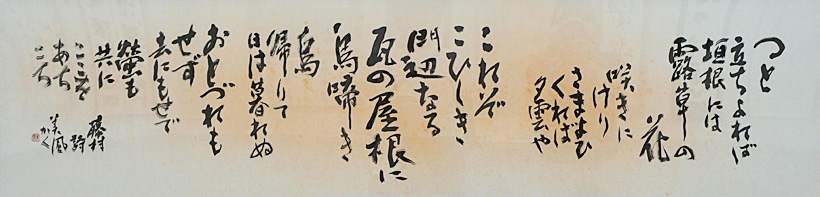 つと
立ちよれば
垣根には
露草の
花
咲きに
けり
さまよひ
くれば
夕雲や
これぞ
こひしき
門辺なる
瓦の屋根に
烏啼き
烏
帰りて
日は暮れぬ
おとづれも
せず
去にもせで
螢と
共に
ここを
あち
こち
藤村
詩
かく